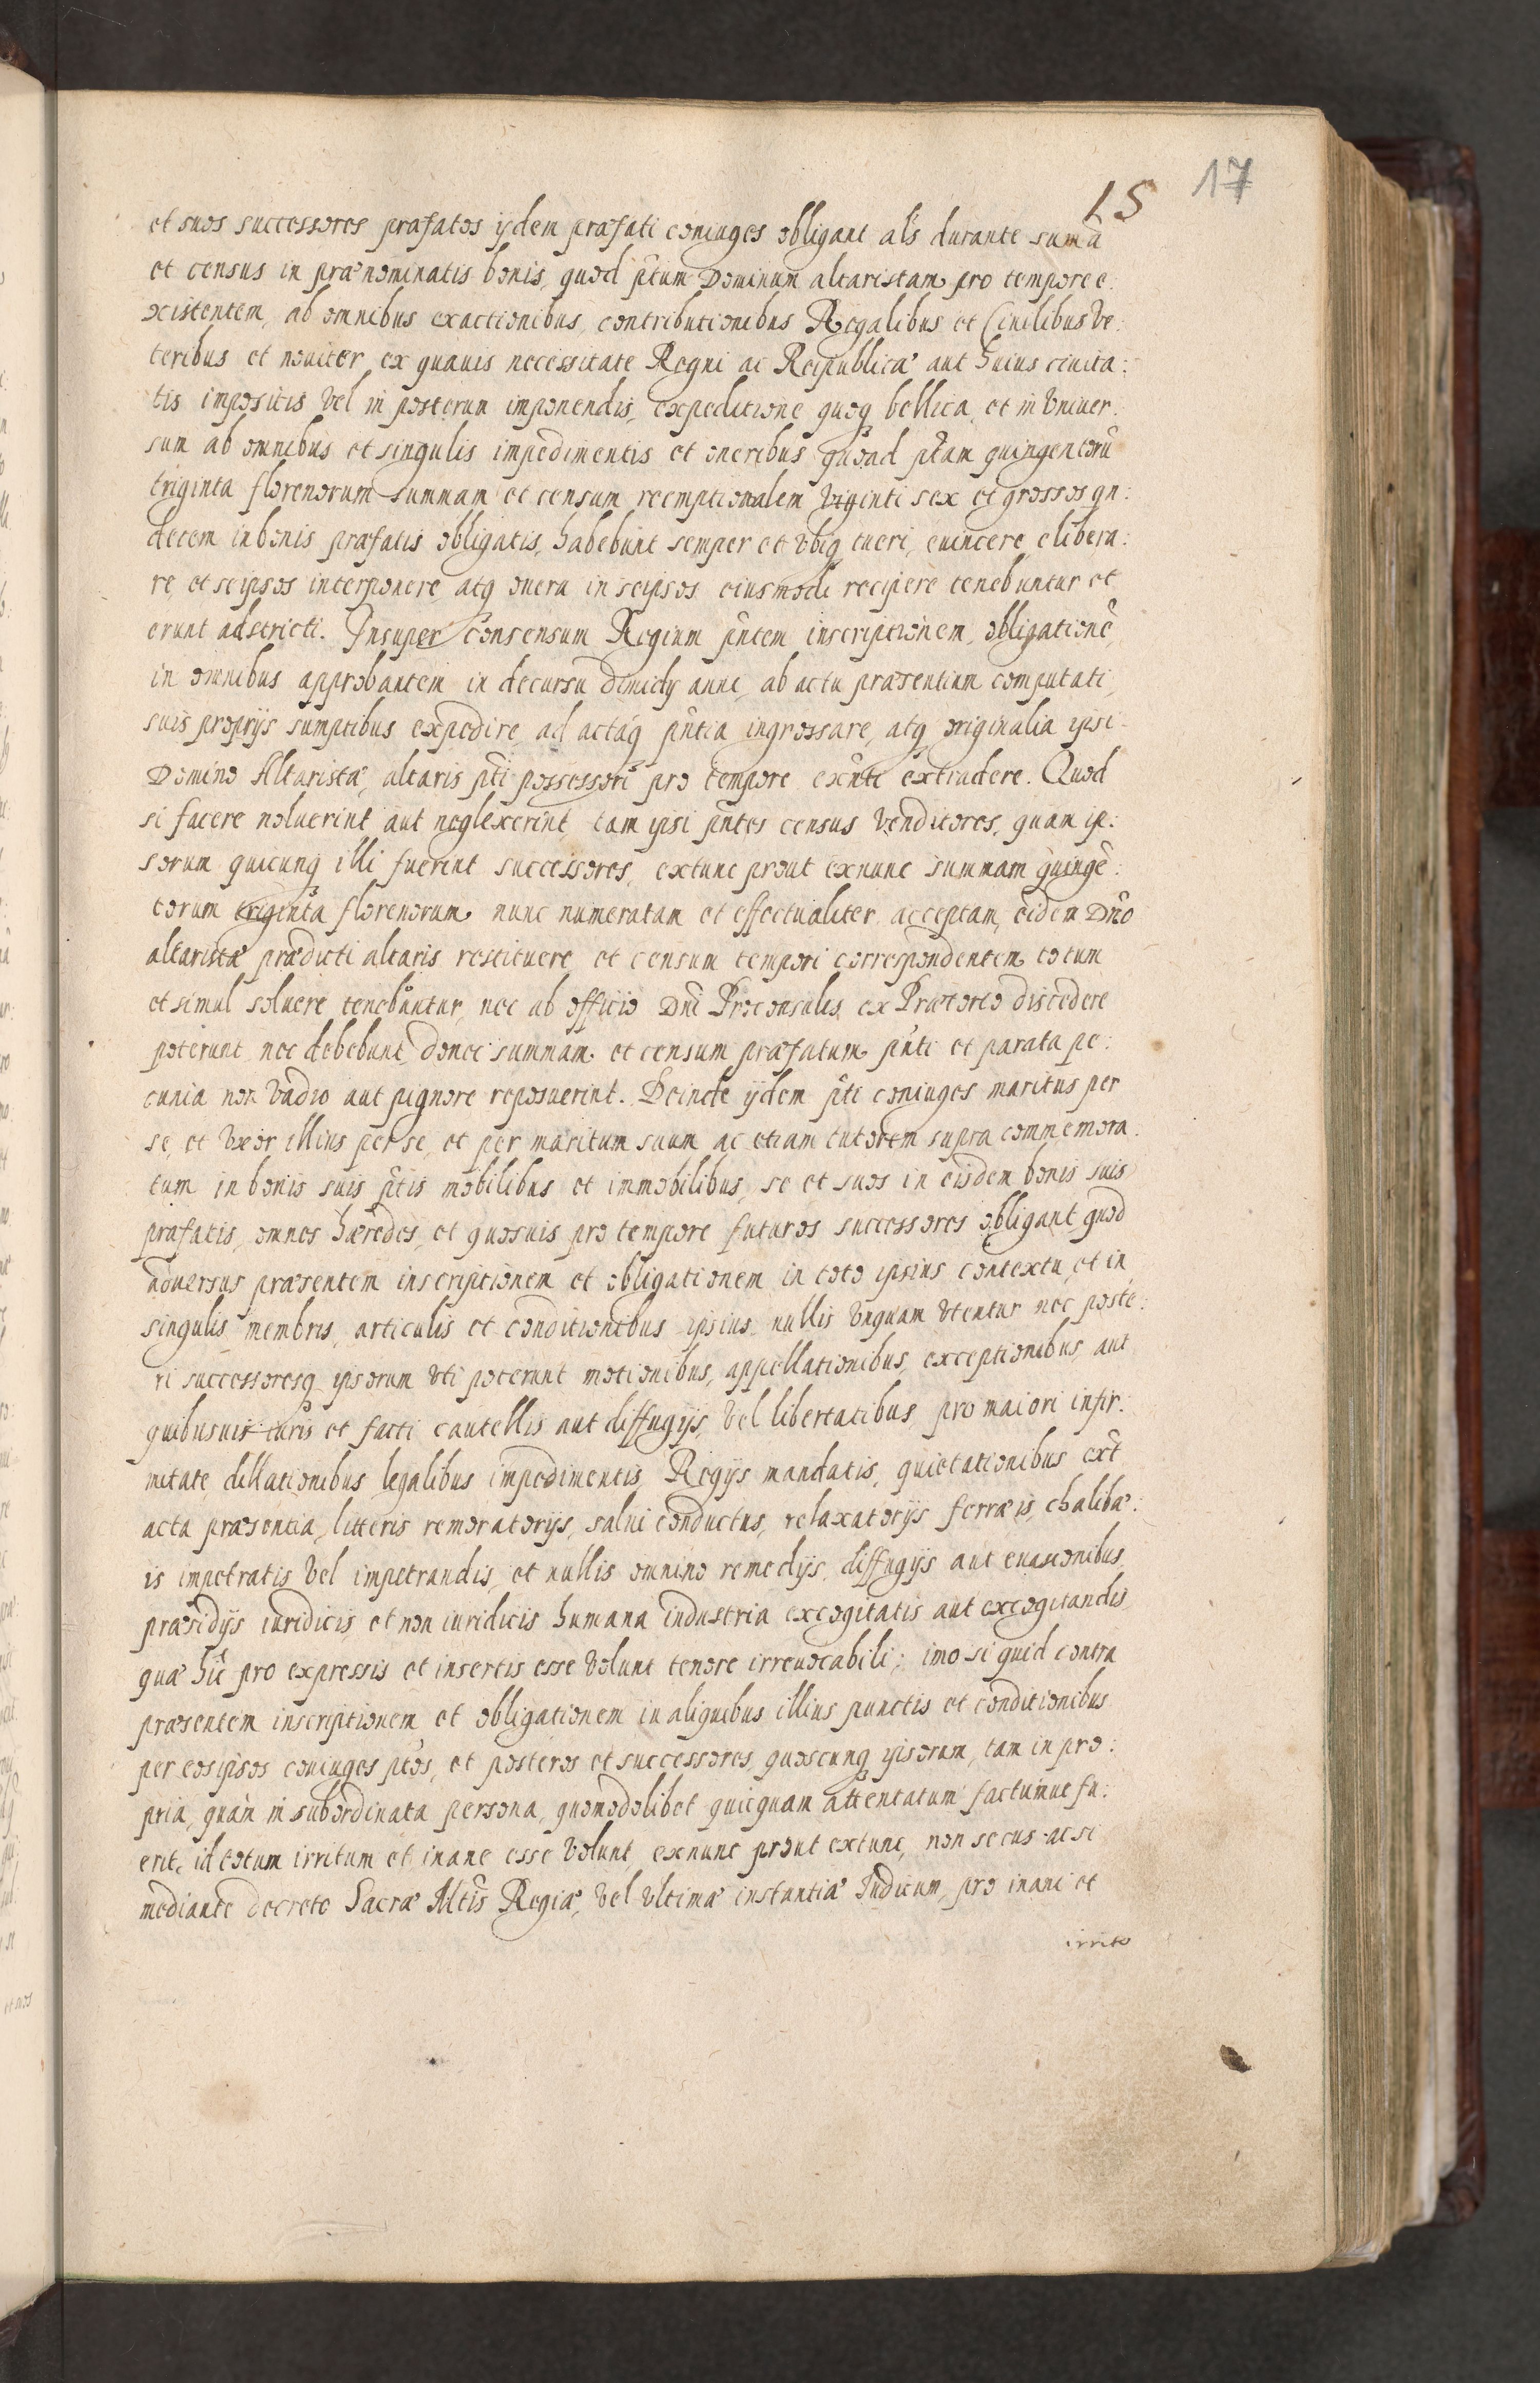 17
15
et suos successores præfatos ijdem præfati coniuges obligant al's durante suma
et census in prænominatis bonis, quod p̃tum Dominum altaristam pro tempore e:
xistentem, ab omnibus exactionibus, contributionibus Regalibus et Ciuilibus Ve:
teribus et nouiter ex quauis necessitate Regni ac Reipublicæ aut huius ciuita:
tis impositis Vel in posterum imponendis, expeditione quoq bellica, et in Vniuer:
sum ab omnibus et singulis impedimentis et oneribus quoad p̃tam quingentorũ
triginta florenorum summam et censum reemptionalem Viginti sex et grossos qn:
decem in bonis præfatis obligatis, habebunt semper et Vbiq tueri, euincere, elibera:
re, et seipsos interponere atq onera in seipsos eiusmodi recipere tenebuntur et
erunt adstricti. Insuper Consensum Regium p̃ntem inscriptionem obligationẽ,
in omnibus approbantem in decursu dimidij anni, ab actu præsentium computati,
suis proprijs sumptibus expedire, ad actaq p̃ntia ingrossare, atq originalia ipsi
Domino Altaristæ, altaris p̃ti possessori pro tempore exñti extradere. Quod
si facere noluerint aut neglexerint, tam ipsi p̃ntes census Venditores, quam ip:
sorum quicunq illi fuerint successores, extunc prout exnunc summam quingẽ:
torum triginta florenorum nunc numeratam et effectualiter acceptam, eidem Dño
altaristæ prædicti altaris restituere et censum tempori correspondentem totum
et simul soluere tenebuntur, nec ab officio Dñi Proconsulis ex Prætorio discedere
poterunt nec debebunt, donec summam et censum præfatum p̃nti et parata pe:
cunia non Vadio aut pignore reposuerint. Deinde ijdem p̃ti coniuges maritus per
se, et Vxor illius per se, et per maritum suum ac etiam tutorem supra commemora:
tum in bonis suis p̃tis mobilibus et immobilibus, se et suos in eisdem bonis suis
præfatis, omnes hæredes, et quosuis pro tempore futuros successores obligant, quod
aduersus præsentem inscriptionem et obligationem in toto ipsius contextu et in
singulis membris, articulis et conditionibus ipsius nullis Vnquam Vtentur nec poste:
ri successoresq ipsorum Vti poterunt motionibus, appellationibus, exceptionibus, aut
quibusuis iuris et facti cautellis aut diffugijs, Vel libertatibus pro maiori infir:
mitate, dillationibus legalibus impedimentis, Regijs mandatis, quietationibus ext
acta præsentia, litteris remoratorijs, salui conductus, relaxatorijs ferræis, chalibæ:
is impetratis Vel impetrandis, et nullis omnino remedijs, diffugijs aut euasionibus
præsidijs iuridicis et non iuridicis humana industria excogitatis aut excogitandis
quæ hic pro expressis et insertis esse Volunt tenore irreuocabili; imo si quid contra
præsentem inscriptionem et obligationem in aliquibus illius punctis et conditionibus
per eosipsos coniuges p̃tos, et posteros et successores quoscunq ipsorum, tam in pro:
pria, quam in subordinata persona, quomodolibet quicquam attentatum factumue fu:
erit, id totum irritum et inane esse Volunt exnunc prout extunc, non secus ac si
mediante decreto Sacræ Mtis Regiæ, Vel Vltimæ instantiæ Iudicum, pro inani et
irrito